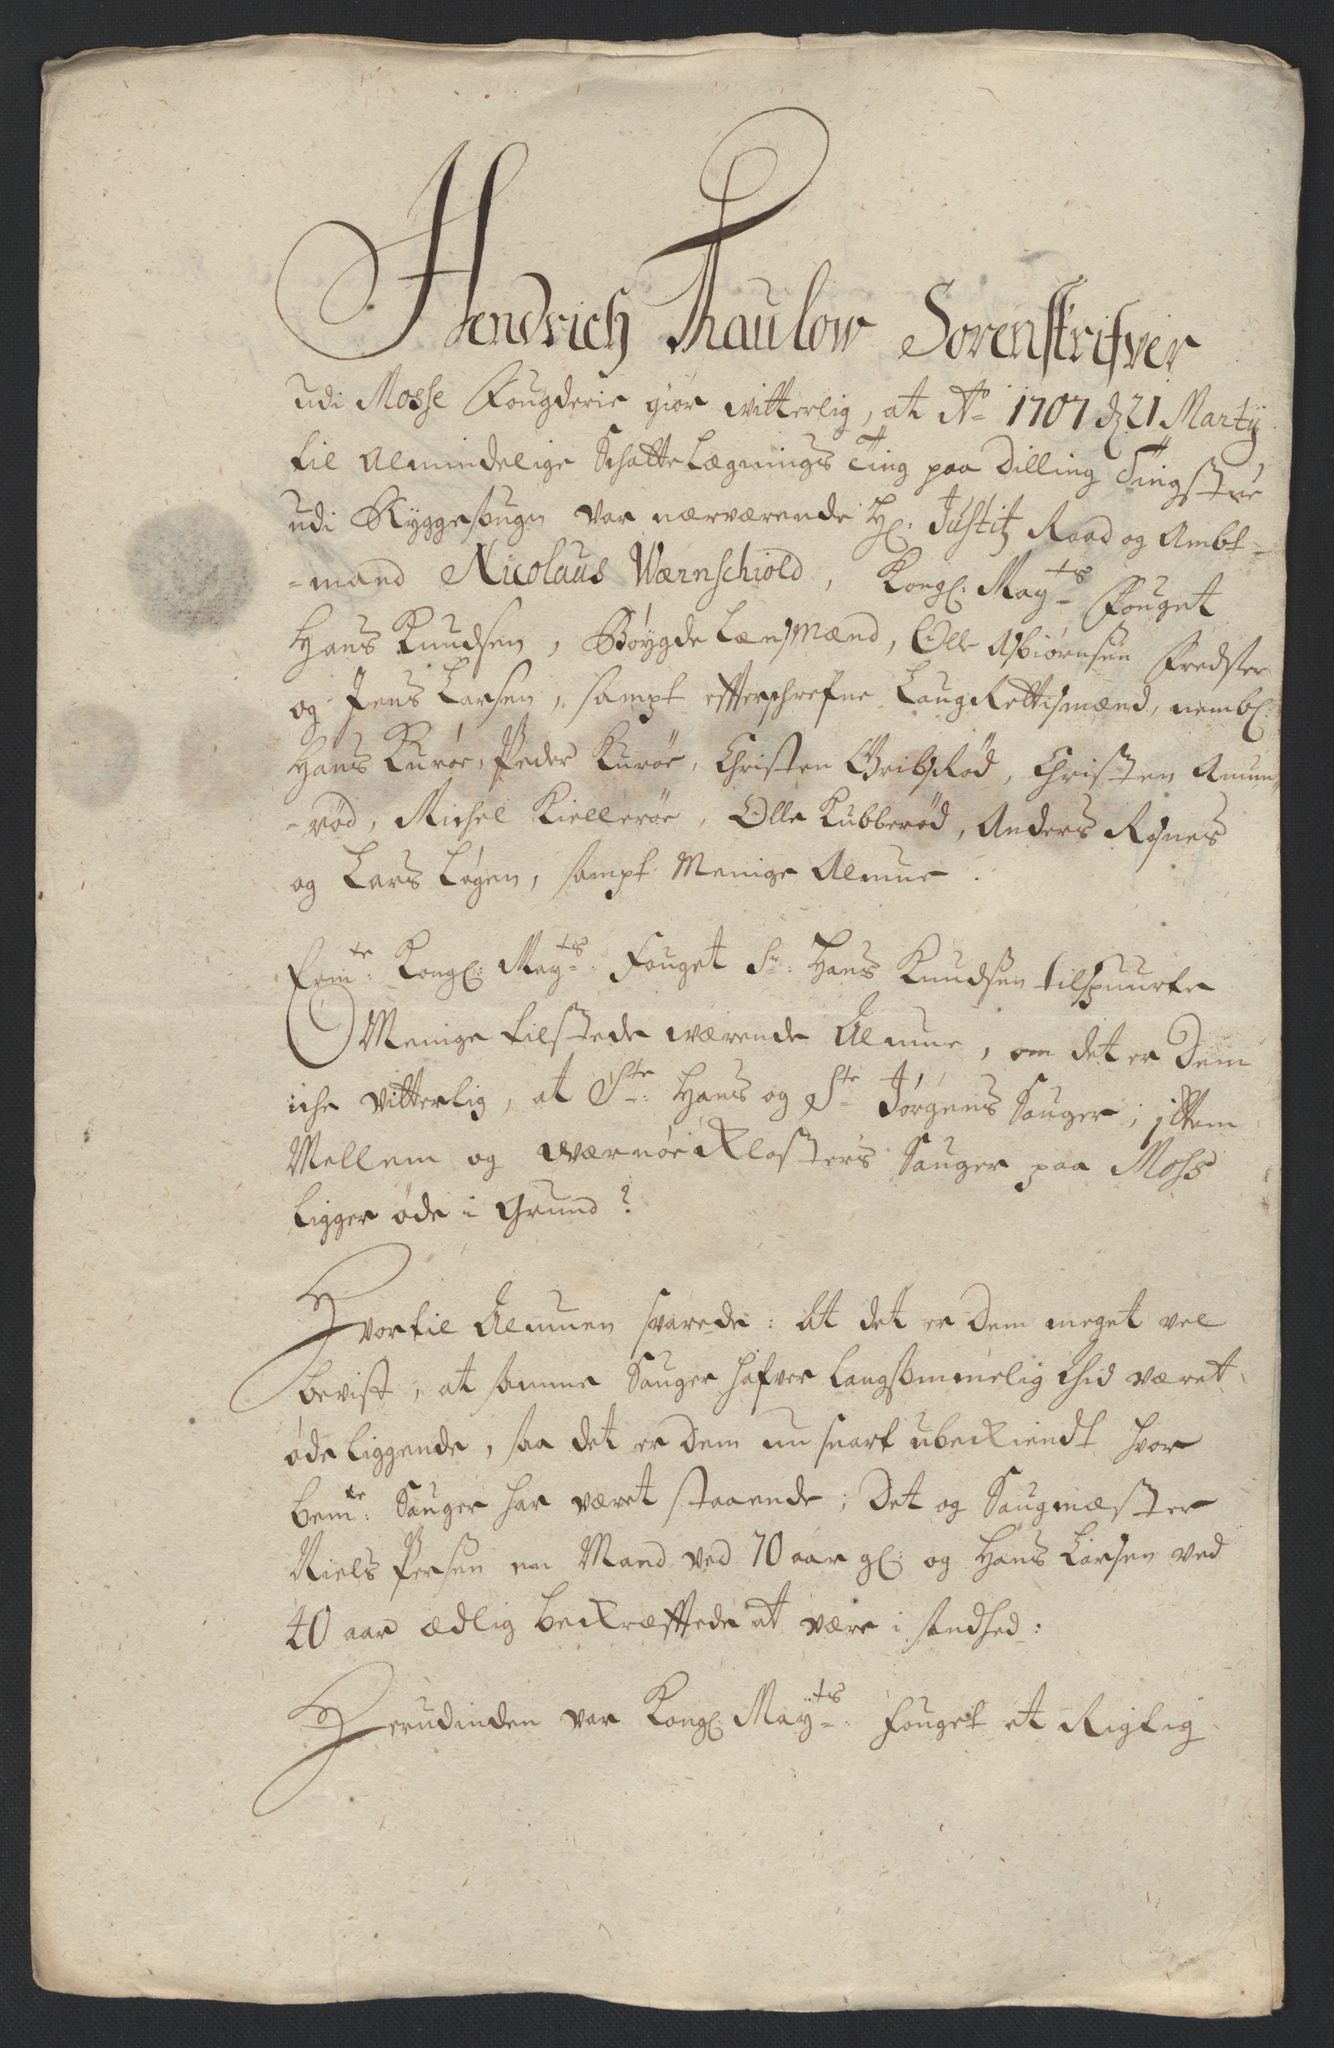 Hendrich Thaulow Sorenskrifver
udi Mosse Fougderie giør witterlig, at Aº 1707 d 21 Martij
til Almindelige Schatte Lægnings Ting paa Dilling Tingstue
udi Ryggesougn var nærværende H: Justitz Raad og Ambt-
-mand Nicolaus Wærnschiold, Kongl: Mayts Fouget
Hans Knudsen, Bøygde Lænsmænd, Olle Asbiørnsen Fredster
og Jens Larsen, sampt effterschrefne LaugRettismænd, nembl:
Hans Kurøe, Peder Kurøe, Christen Gribsrød, Christen Amun-
-rød, Michel Kiellerøe, Olle Kubberød, Anders Rosnes
og Lars Løgen, sampt Menige Almue.
Ermte: Kongl: Mayts: Fouget Sr: Hans Knudsen tilspuurte
Menige tilstede værende Almue, om det er Dem
iche vitterlig, at Ste: Hans og Ste Jørgens Sauger, jttem
Mellem og Værnøe Klosters Sauger paa Moss
ligger øde i Grund?
Hvortil Almuen svarede: At det er Dem meget vel
bevist, at samme Sauger hafver langsommelig thid været
øde liggende, saa det er Dem nu snart ubekiendt hvor
bemte: Sauger har været staaende; Det og Saugmæster
Niels Persen en Mand ved 70 aar gl: og Hans Larsen ved
40 aar ædlig bekræfftede at være i sandhed:
Herudinden var Kongl: Mayts: Fouget et Rigtig